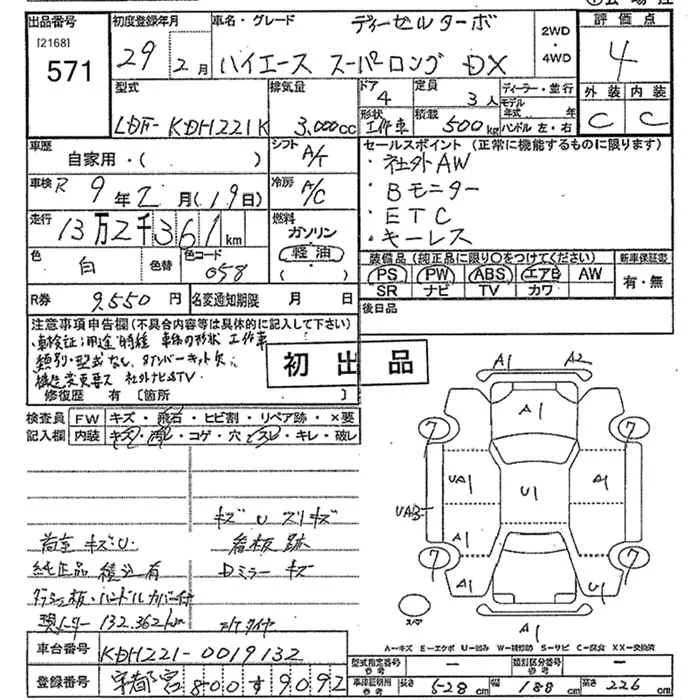 出品番号 初度登録年月 車名・グレード ディーゼルターボ 2WD ・ 4WD 評価点
[2168]
571 29年 2月 ハイエース スーパーロング DX 4
型式 排気量 ドア 4 定員 3人 ディーラー・並行 外装 内装
LDF-KDH221K 3,000cc 形状 工作車 積載 500kg モデル年式 年 ハンドル 左・右 C C
車歴 自家用・( ) シフト A/T セールスポイント(正常に機能するものに限ります)
・社外AW
車検 R 9年2月(19日) 冷房 A/C ・Bモニター
・ETC
走行 13万2千361km 燃料 ガソリン 軽油 ( ) ・キーレス
色 白 色替 色コード 058
装備品(純正品に限り○をつけてください) 新車保証書
PS PW ABS エアB AW 有・無
SR ナビ TV カワ
R券 9,550円 名変通知期限 月 日 後日品
注意事項申告欄(不具合内容等は具体的に記入して下さい)
・車検証:用途 特種 車体の形状 工作車
類別・型式なし、8ナンバーキット欠
構造変更要ス 社外ナビ&TV
修復歴 有 [箇所 ]
初出品
検査員記入欄 FW キズ・飛石・ヒビ割・リペア跡・×要
内装 キズ・汚レ・コゲ・穴・スレ・キレ・破レ
キズ U スリキズ
荷室 キズU 看板跡
純正品 積込有 Dミラー キズ
ダッシュ板・ハンドルカバー付
現メーター 132,362km
A1 A2
A1
7 7
UA1 U1 A1
UA3
A1
7 7
A1 U1
スペア
A1
A-キズ E-エクボ U-凹み W-補修跡 S-サビ C-腐食 XX-交換済
車台番号 KDH221-0019132
型式指定番号 参考 — 類別区分番号 参考 —
登録番号 宇都宮 800す9092
車検証明用 参考 長さ 528cm 幅 188cm 高さ 226cm